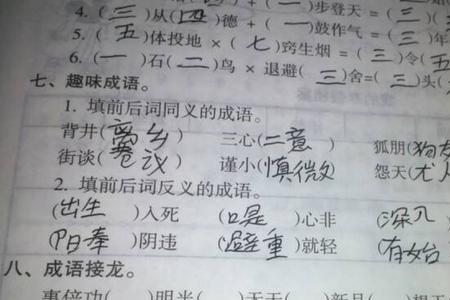 4. (三)从(四)德 + (一)步登天 = (三)(
5. (五)体投地 × (七)窍生烟 = (三)年
6. (一)石(二)鸟 × 退避(三)舍=(三)头(
七、趣味成语。
1. 填前后词同义的成语。
背井(离乡) 三心(二意) 狐朋(狗友
街谈(巷议) 谨小(慎微) 怨天(尤人
2. 填前后词反义的成语。
(出生)入死 (口是)心非 (深入
(阳奉)阴违 (避重)就轻 (有始
八、成语接龙。
事倍功( )明半( )天天( )新月(